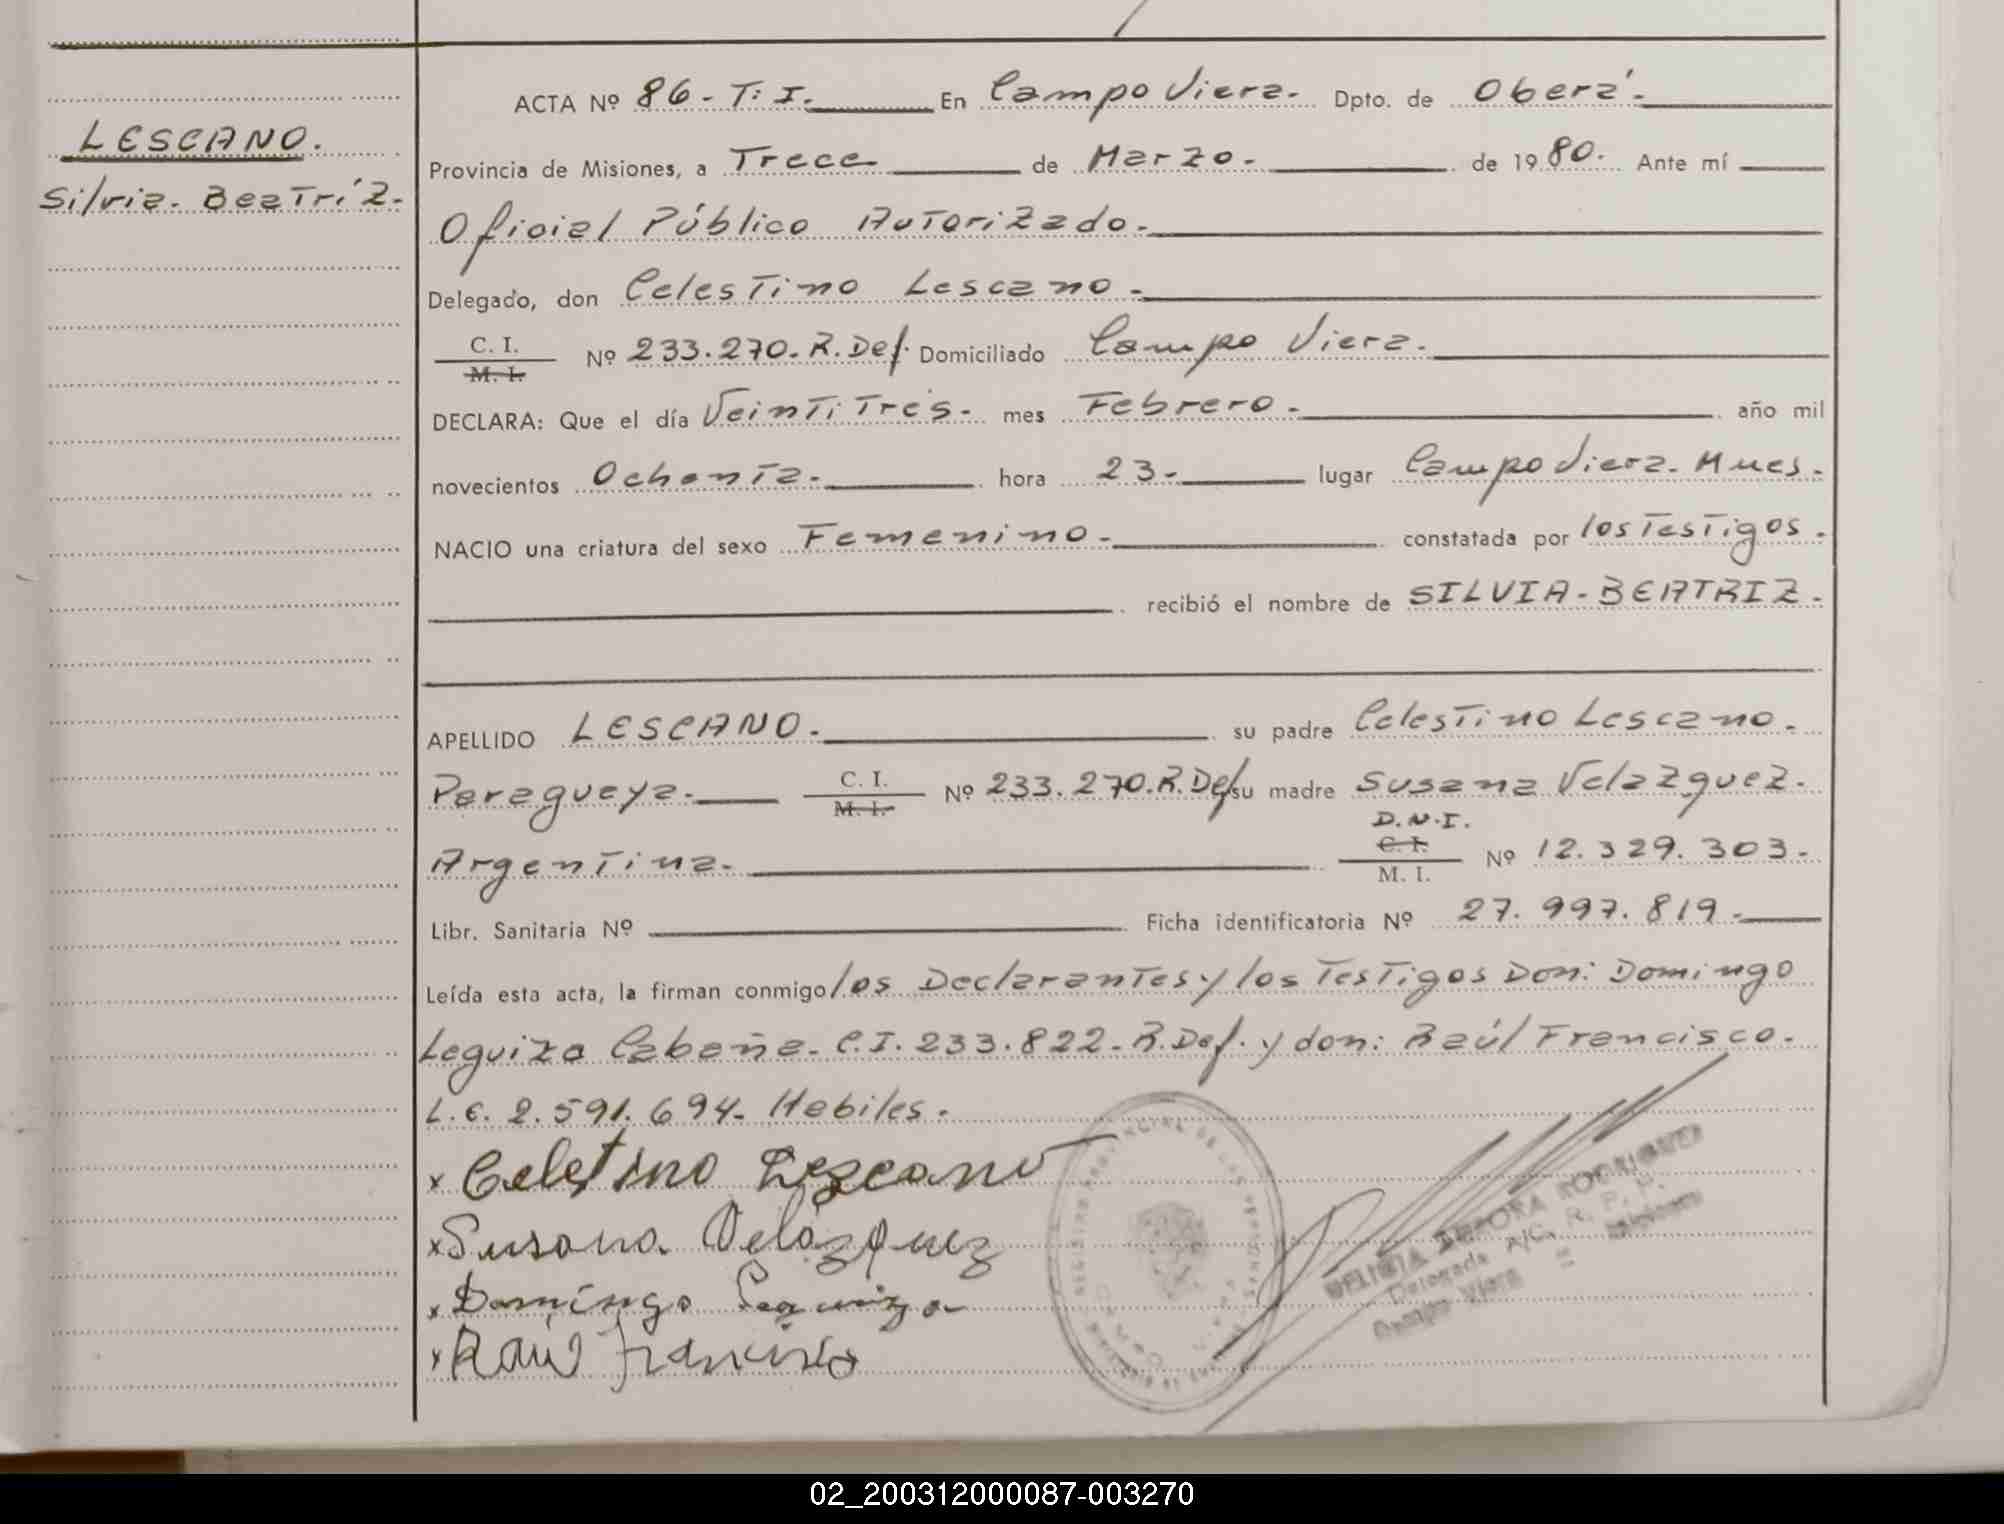 LESCANO.
Silvia. Beatríz.
ACTA Nº 86 - T: I. En Campo Viera. Dpto. de Oberá.
Provincia de Misiones, a Trece de Marzo. de 1980. Ante mí
Oficial Público Autorizado.
Delegado, don Celestino Lescano.
C. I.
M. I.
Nº 233.270. R. Def. Domiciliado Campo Viera.
DECLARA: Que el día Veintitrés. mes Febrero. año mil
novecientos Ochenta. hora 23. lugar Campo Viera. Mnes.
NACIO una criatura del sexo Femenino. constatada por los Testigos.
recibió el nombre de SILVIA-BEATRIZ.
APELLIDO LESCANO. su padre Celestino Lescano.
Paragueya. C. I. Nº 233.270.R.Def su madre Susana Velazquez.
M. I.
D.N.I.
Argentina. C. I. Nº 12.329.303.
M. I.
Libr. Sanitaria Nº Ficha identificatoria Nº 27.997.819.
Leída esta acta, la firman conmigo los Declarantes y los Testigos Don: Domingo
Leguiza Cabaña. C.I. 233.822. R. Def. y don: Raúl Francisco.
L.E. 2.591.694. Habiles.
x Celetino Lezcano
x Susana Velázquez
x Domingo Leguiza
x Raúl Francisco
DELICIA DEBORA RODRIGUEZ
Delegada A/C. R. P. P.
Campo Viera = Misiones
02_200312000087-003270